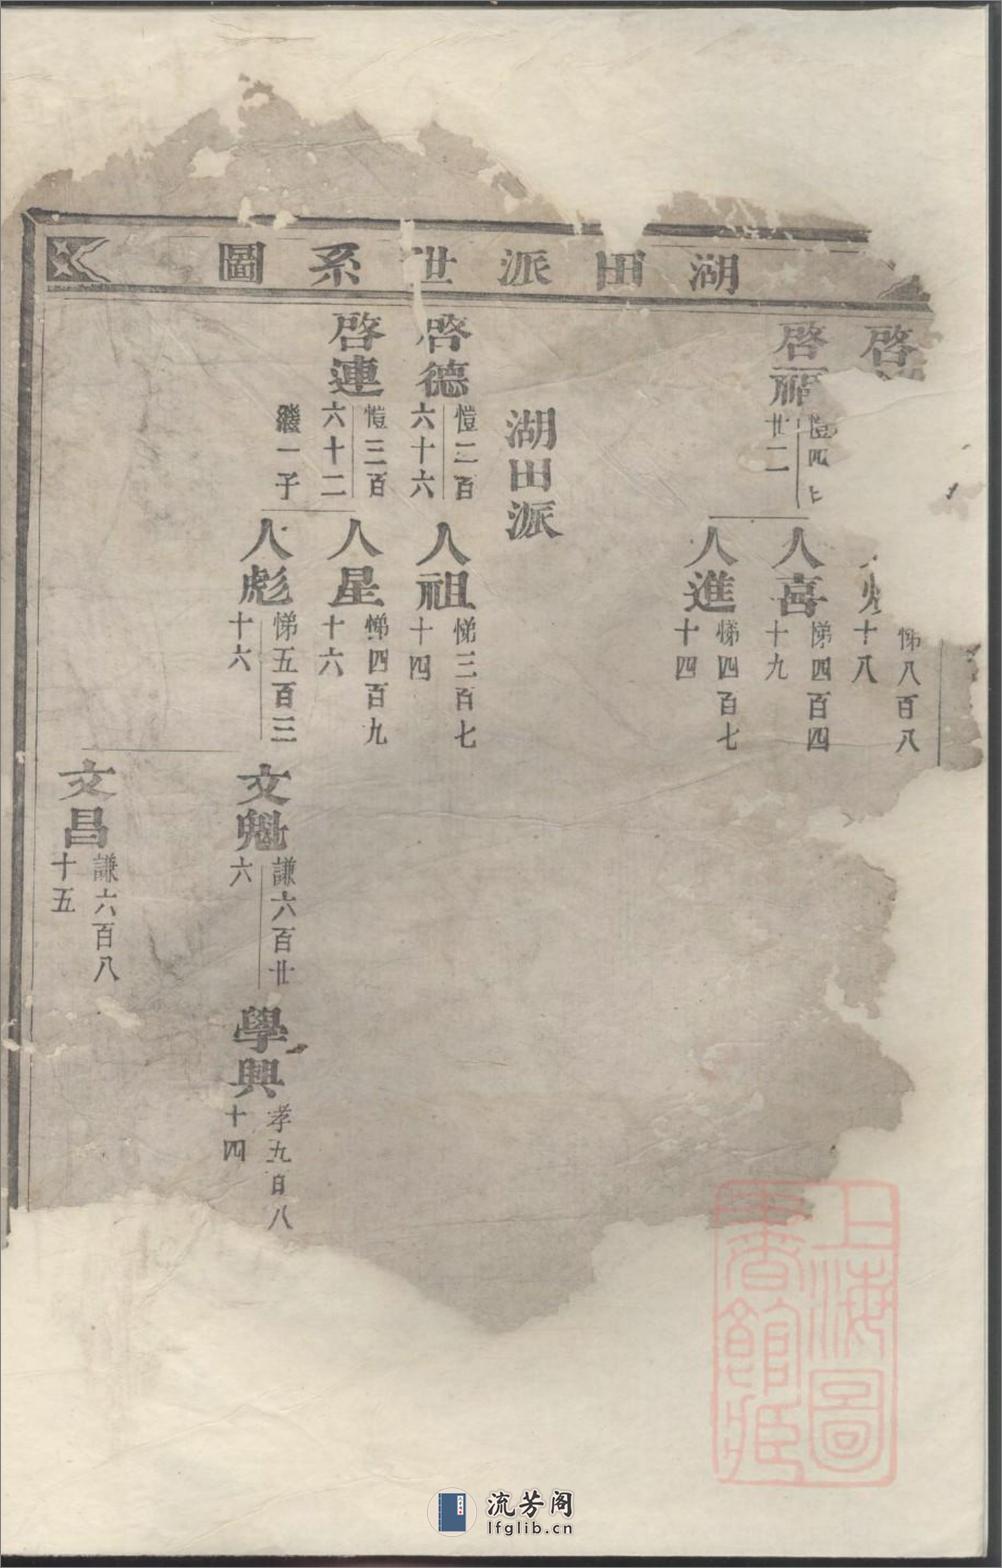 湖田派世系圖
啓
悌八百八
十八
啓
廿二
人喜
悌四百四
十九
人進
悌四百七
十四
湖田派
啓德
愷二百
六十六
人祖
悌三百七
十四
啓連
愷三百
六十二
人星
悌四百九
十六
繼一子
人彪
悌五百三
十六
文魁
謙六百廿
六
學興
孝九百八
十四
文昌
謙六百八
十五
上海圖
書館藏
流芳阁
lfglib.cn